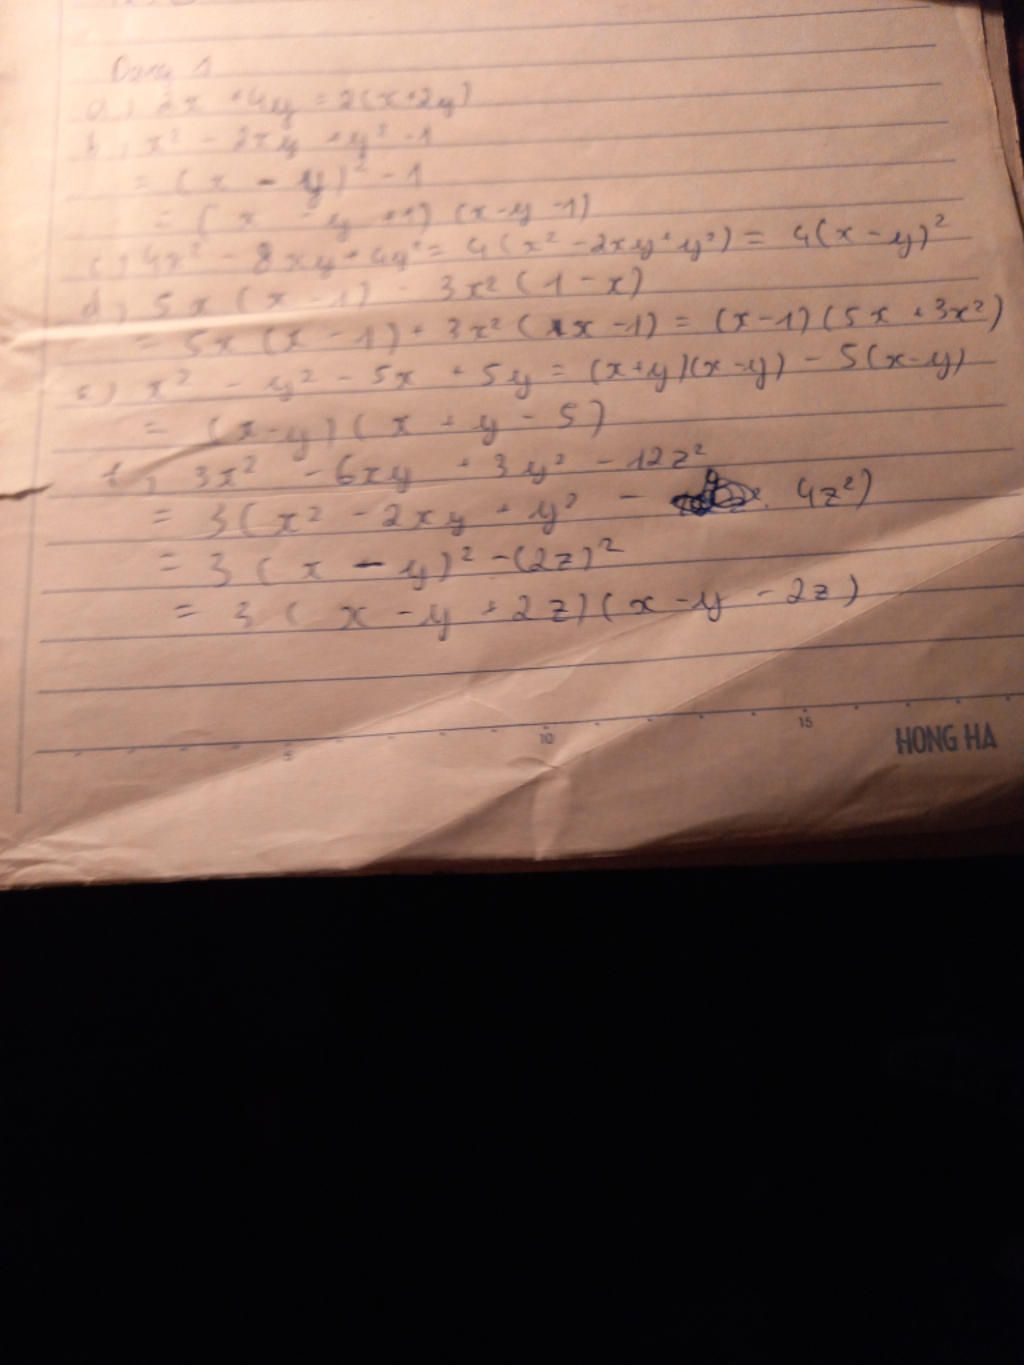 Dạng 1
a, 2x + 4y = 2(x+2y)
b, x² - 2xy + y² - 1
= (x - y)² - 1
= (x - y + 1) (x-y-1)
c, 4x² - 8xy + 4y² = 4(x² - 2xy + y²) = 4(x-y)²
d, 5x (x - 1) - 3x² (1 - x)
= 5x (x - 1) + 3x² (x - 1) = (x-1) (5x + 3x²)
e) x² - y² - 5x + 5y = (x+y)(x-y) - 5(x-y)
= (x-y) (x + y - 5)
f, 3x² - 6xy + 3y² - 12z²
= 3(x² - 2xy + y² - 4z²)
= 3 (x - y)² - (2z)²
= 3 (x - y + 2z) (x - y - 2z)
5 10 15
HONG HA